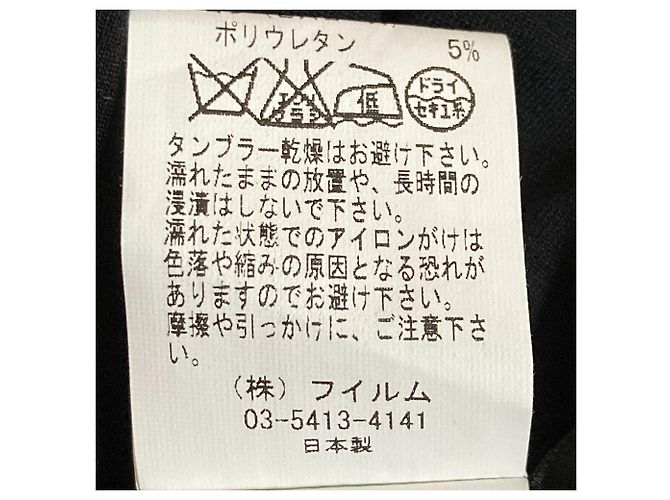 ポリウレタン 5%
エンソ
サラシ
低
ドライ
セキユ系
タンブラー乾燥はお避け下さい。
濡れたままの放置や、長時間の
浸漬はしないで下さい。
濡れた状態でのアイロンがけは
色落や縮みの原因となる恐れが
ありますのでお避け下さい。
摩擦や引っかけに、ご注意下さ
い。
(株) フイルム
03-5413-4141
日本製